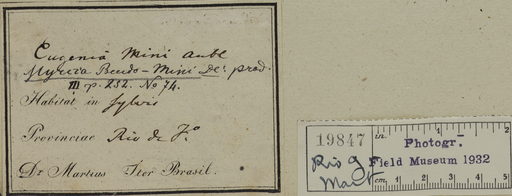 Eugenia Mini Aubl
Myrcia Pseudo-Mini DC. prod.
III p. 252. No 74.
Habitat in sylvis
Provinciae Rio de J.o
Dr Martius Iter Brasil.
19847
in. 1 2
Photogr.
Field Museum 1932
cm. 1 2 3 4 5
Rio J
Mart